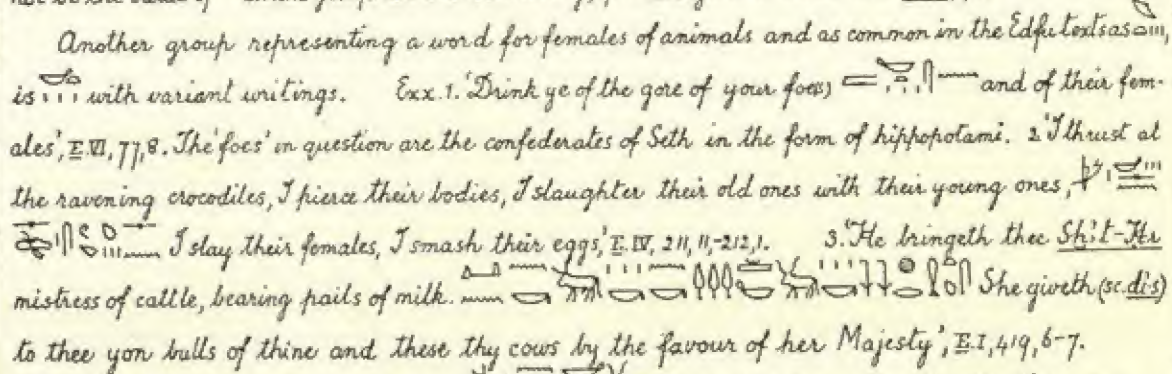 Another group representing a word for females of animals and as common in the Edfu texts as
is with variant writings. Exx. 1. 'Drink ye of the gore of your foes, and of their fem-
ales', E. VI, 77, 8. The 'foes' in question are the confederates of Seth in the form of hippopotami. 2 'I thrust at
the ravening crocodiles, I pierce their bodies, I slaughter their old ones with their young ones,
I slay their females, I smash their eggs,' E. IV, 211, 11,-212, 1. 3. 'He bringeth thee
mistress of cattle, bearing pails of milk. She giveth (sc. di·s)
to thee yon bulls of thine and these thy cows by the favour of her Majesty', E. I, 419, 6-7.